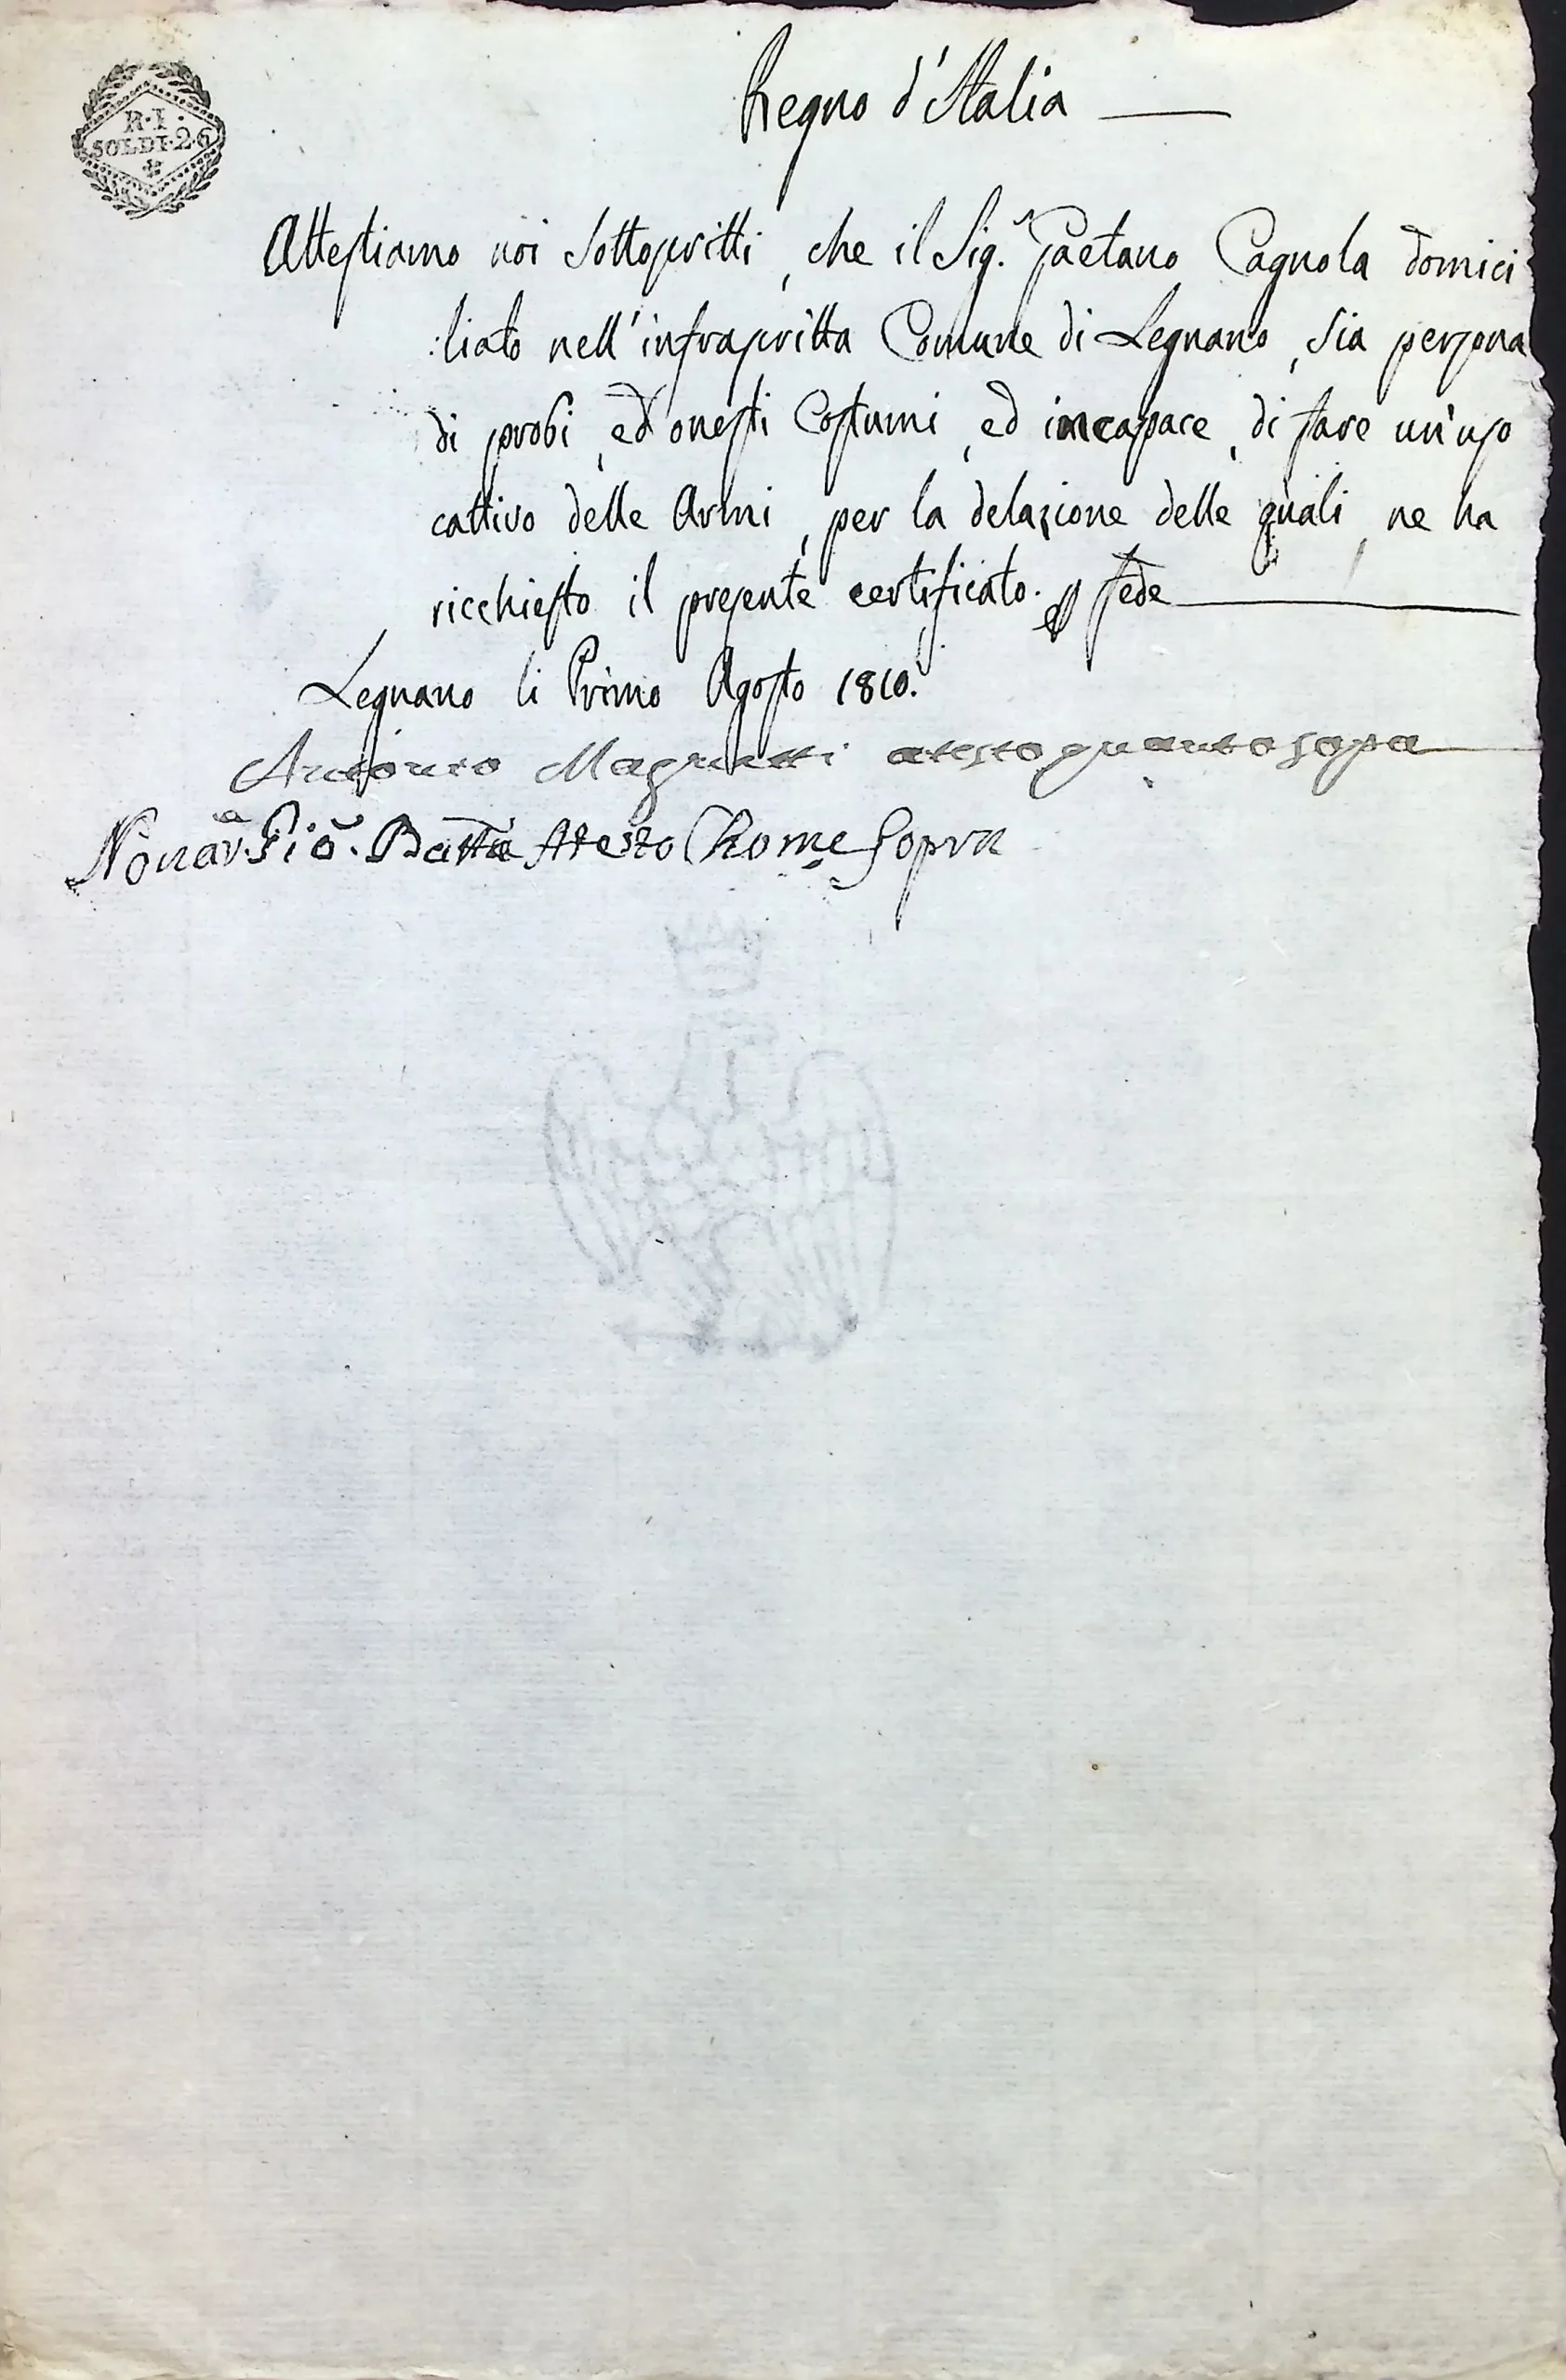 R·I·
SOLDI·2·6
Regno d'Italia
Attestiamo noi Sottoscritti, che il Sig.r Gaetano Cagnola domici
:liato nell'infrascritta Comune di Legnano, sia persona
di probi, ed onesti Costumi, ed incapace, di fare un'uso
cattivo delle Armi, per la delazione delle quali, ne ha
ricchiesto il presente certificato. In fede
Legnano li Primo Agosto 1810.
Antonio Magnetti atesto quanto sopa
Gio. Batta Atesto Chome Sopra